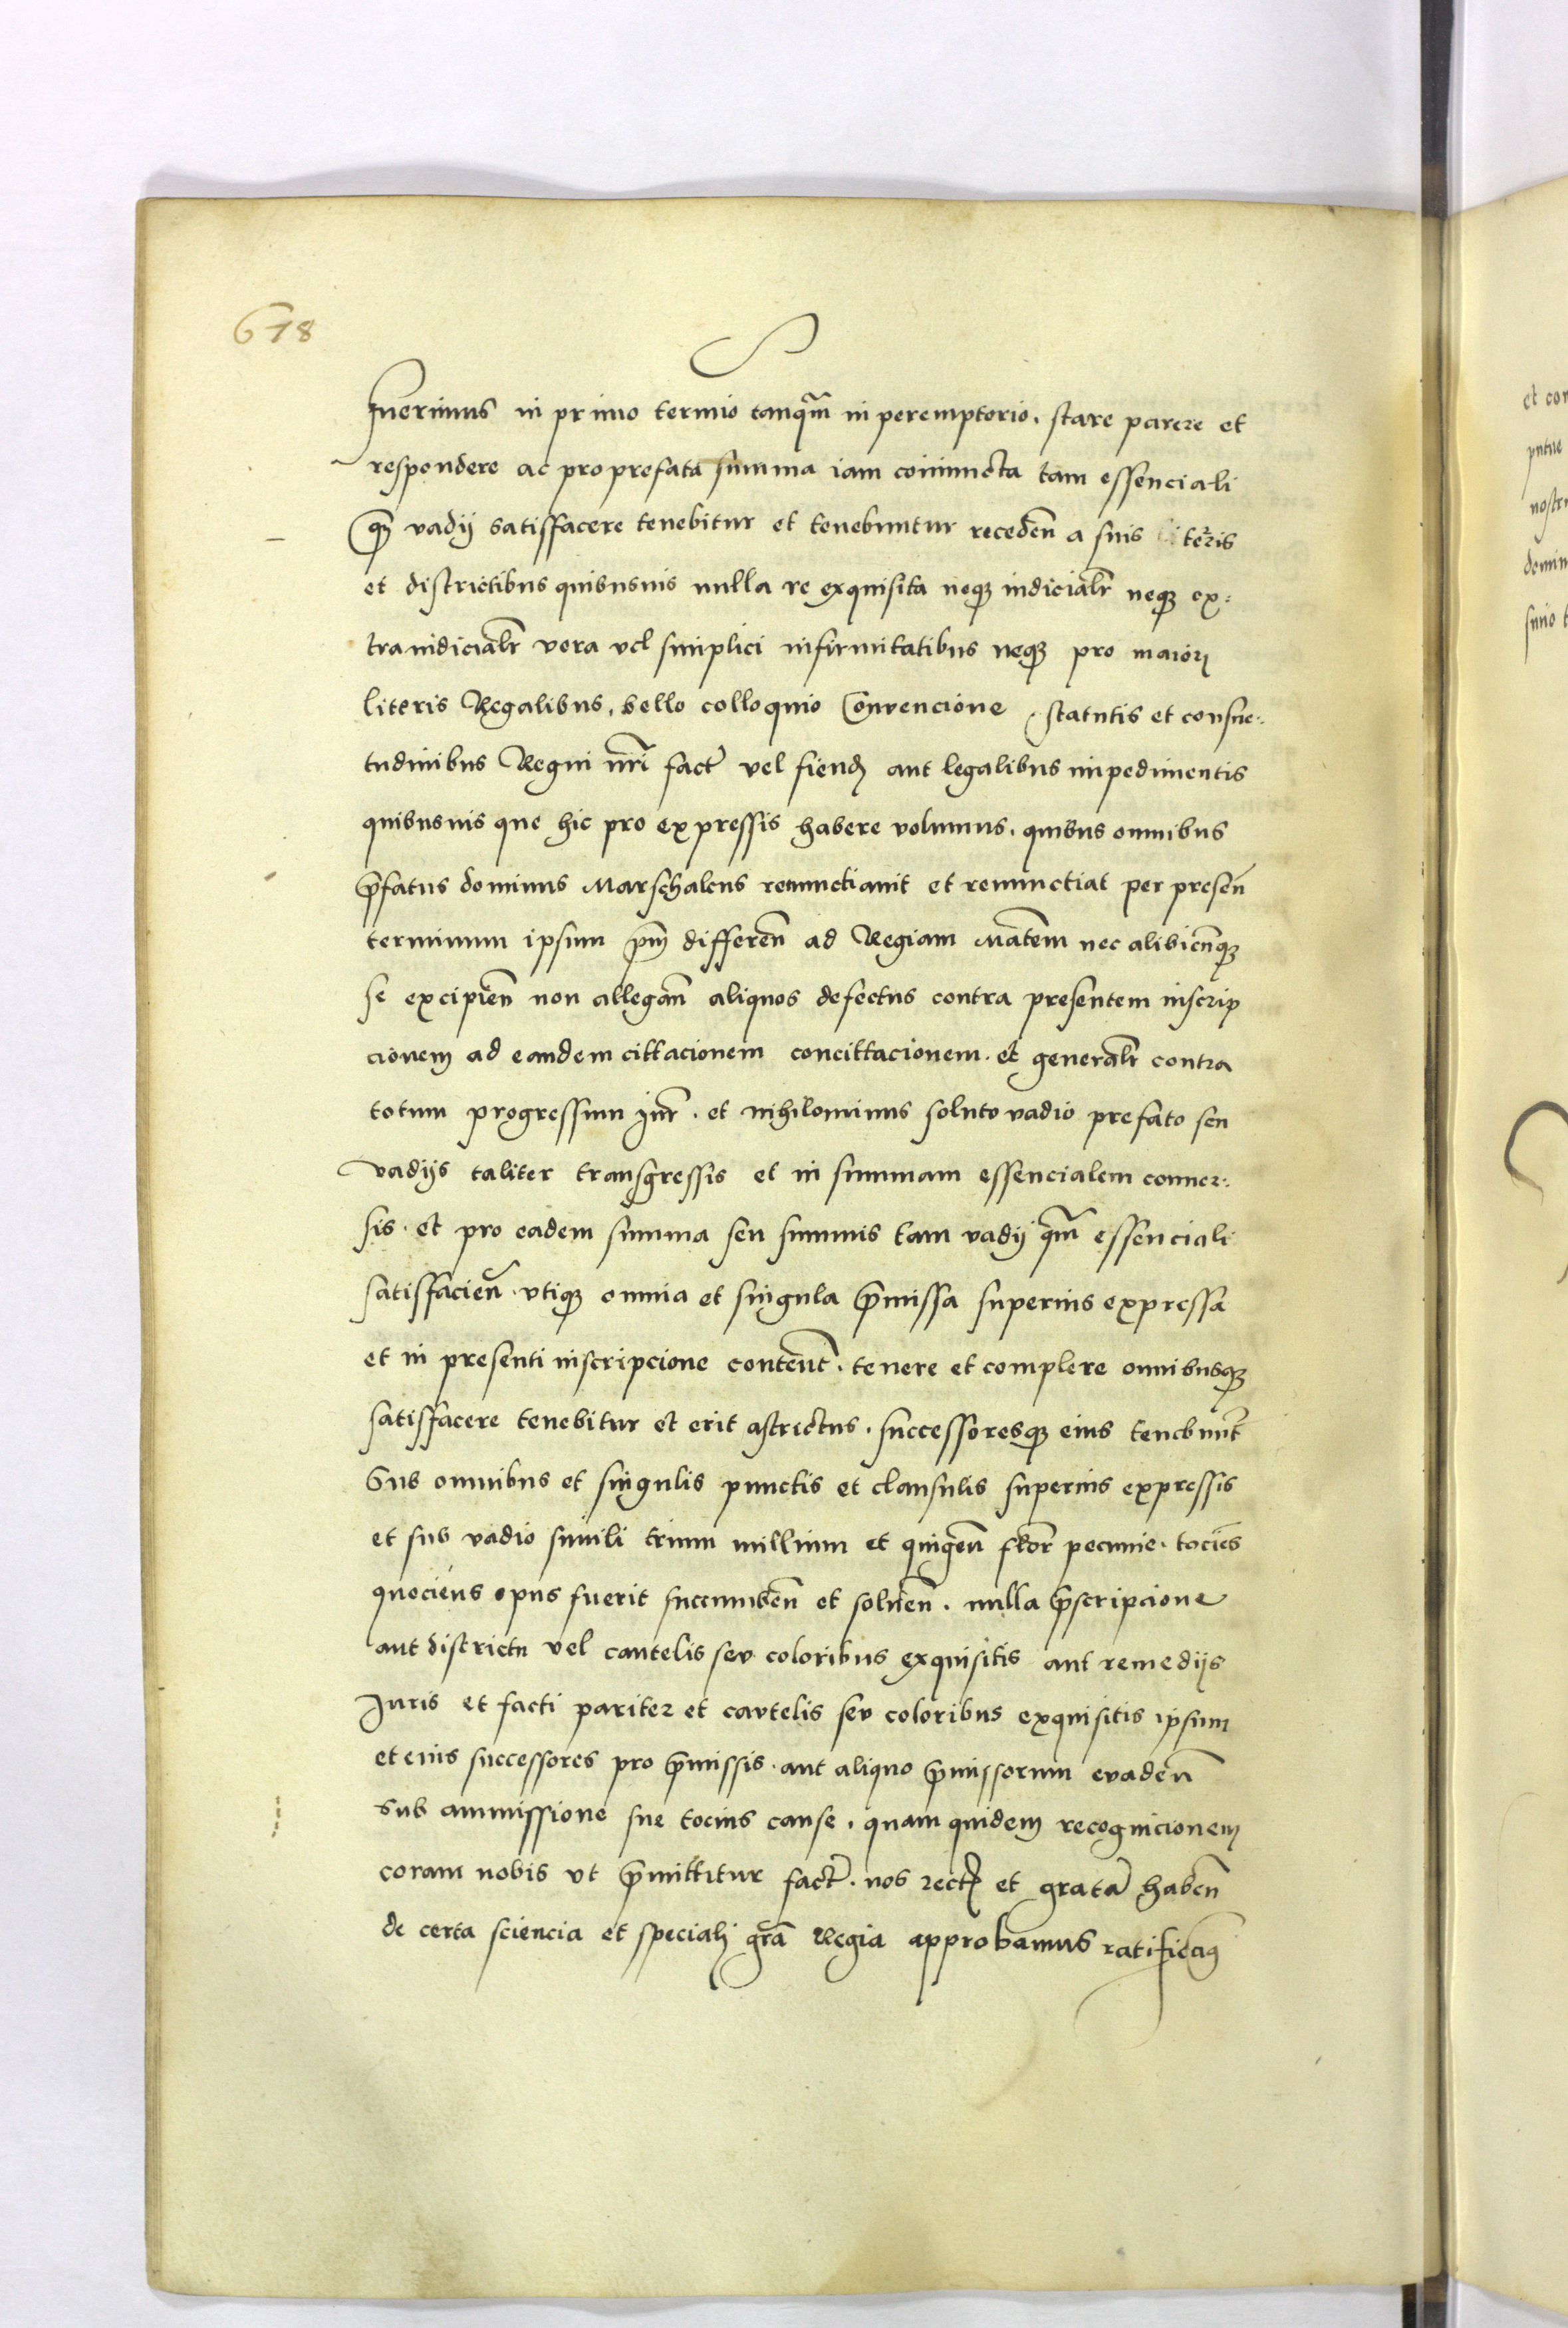 678
Iuerimus in primo termio tanq̃m in peremptorio. stare parere et
respondere ac pro prefata summa iam coniuncta tam essenciali
q̃ȝ vadij satisfacere tenebitur et tenebuntur receden̄ a suis literis
et districtibus quibusuis nulla re exquisita neqȝ iudicialr̃ neqȝ ex:
traiudicialr̃ vera vel simplici infirmitatibus neqȝ pro maiorj
literis Regalibus, bello colloquio Convencione, statutis et consue:
tudinibus Regni nr̃i fact̃ vel fiendȝ aut legalibus impedimentis
quibusuis que hic pro expressis habere volumus. quibus omnibus
p̃fatus dominus Marschalcus renunctiauit et renunctiat per presen̄
terminum ipsum p̄m̄ differen̄ ad Regiam Mat̄em nec alibicun̄qȝ
se excipien̄ non allegan̄ aliquos defectus contra presentem inscrip
cionem ad eandem cittacionem concittacionem. et generalr̃ contra
totum progressum Iur̃. et nihilominus soluto vadio prefato seu
vadijs taliter transgressis et in summam essencialem conuer:
sis. et pro eadem summa seu summis tam vadij q̃m essenciali
satisfacien̄. vtiqȝ omnia et singula p̃missa superius expressa
et in presenti inscripcione content̃. tenere et complere omnibusqȝ
satisfacere tenebitur et erit astrictus. successoresqȝ eius tenebunt̃
Sub omnibus et singulis punctis et clausulis superius expressis
et sub vadio simili trium millium et quigen̄ flor̃ pecunie. tocies
quociens opus fuerit succumben̄ et soluen̄. nulla p̃scripcione
aut districtu vel cautelis sev coloribus exquisitis aut remedijs
Iuris et facti pariter et cavtelis sev coloribus exquisitis ipsum
et eius successores pro p̃missis. aut aliquo p̃missorum evaden̄
sub ammissione sue tocius cause. quam quidem recognicionem
coram nobis vt p̃mittitur fact̃. nos rectȝ et gratã haben̄
de certa sciencia et specialj gr̃a Regia approbamus ratificamꝰ